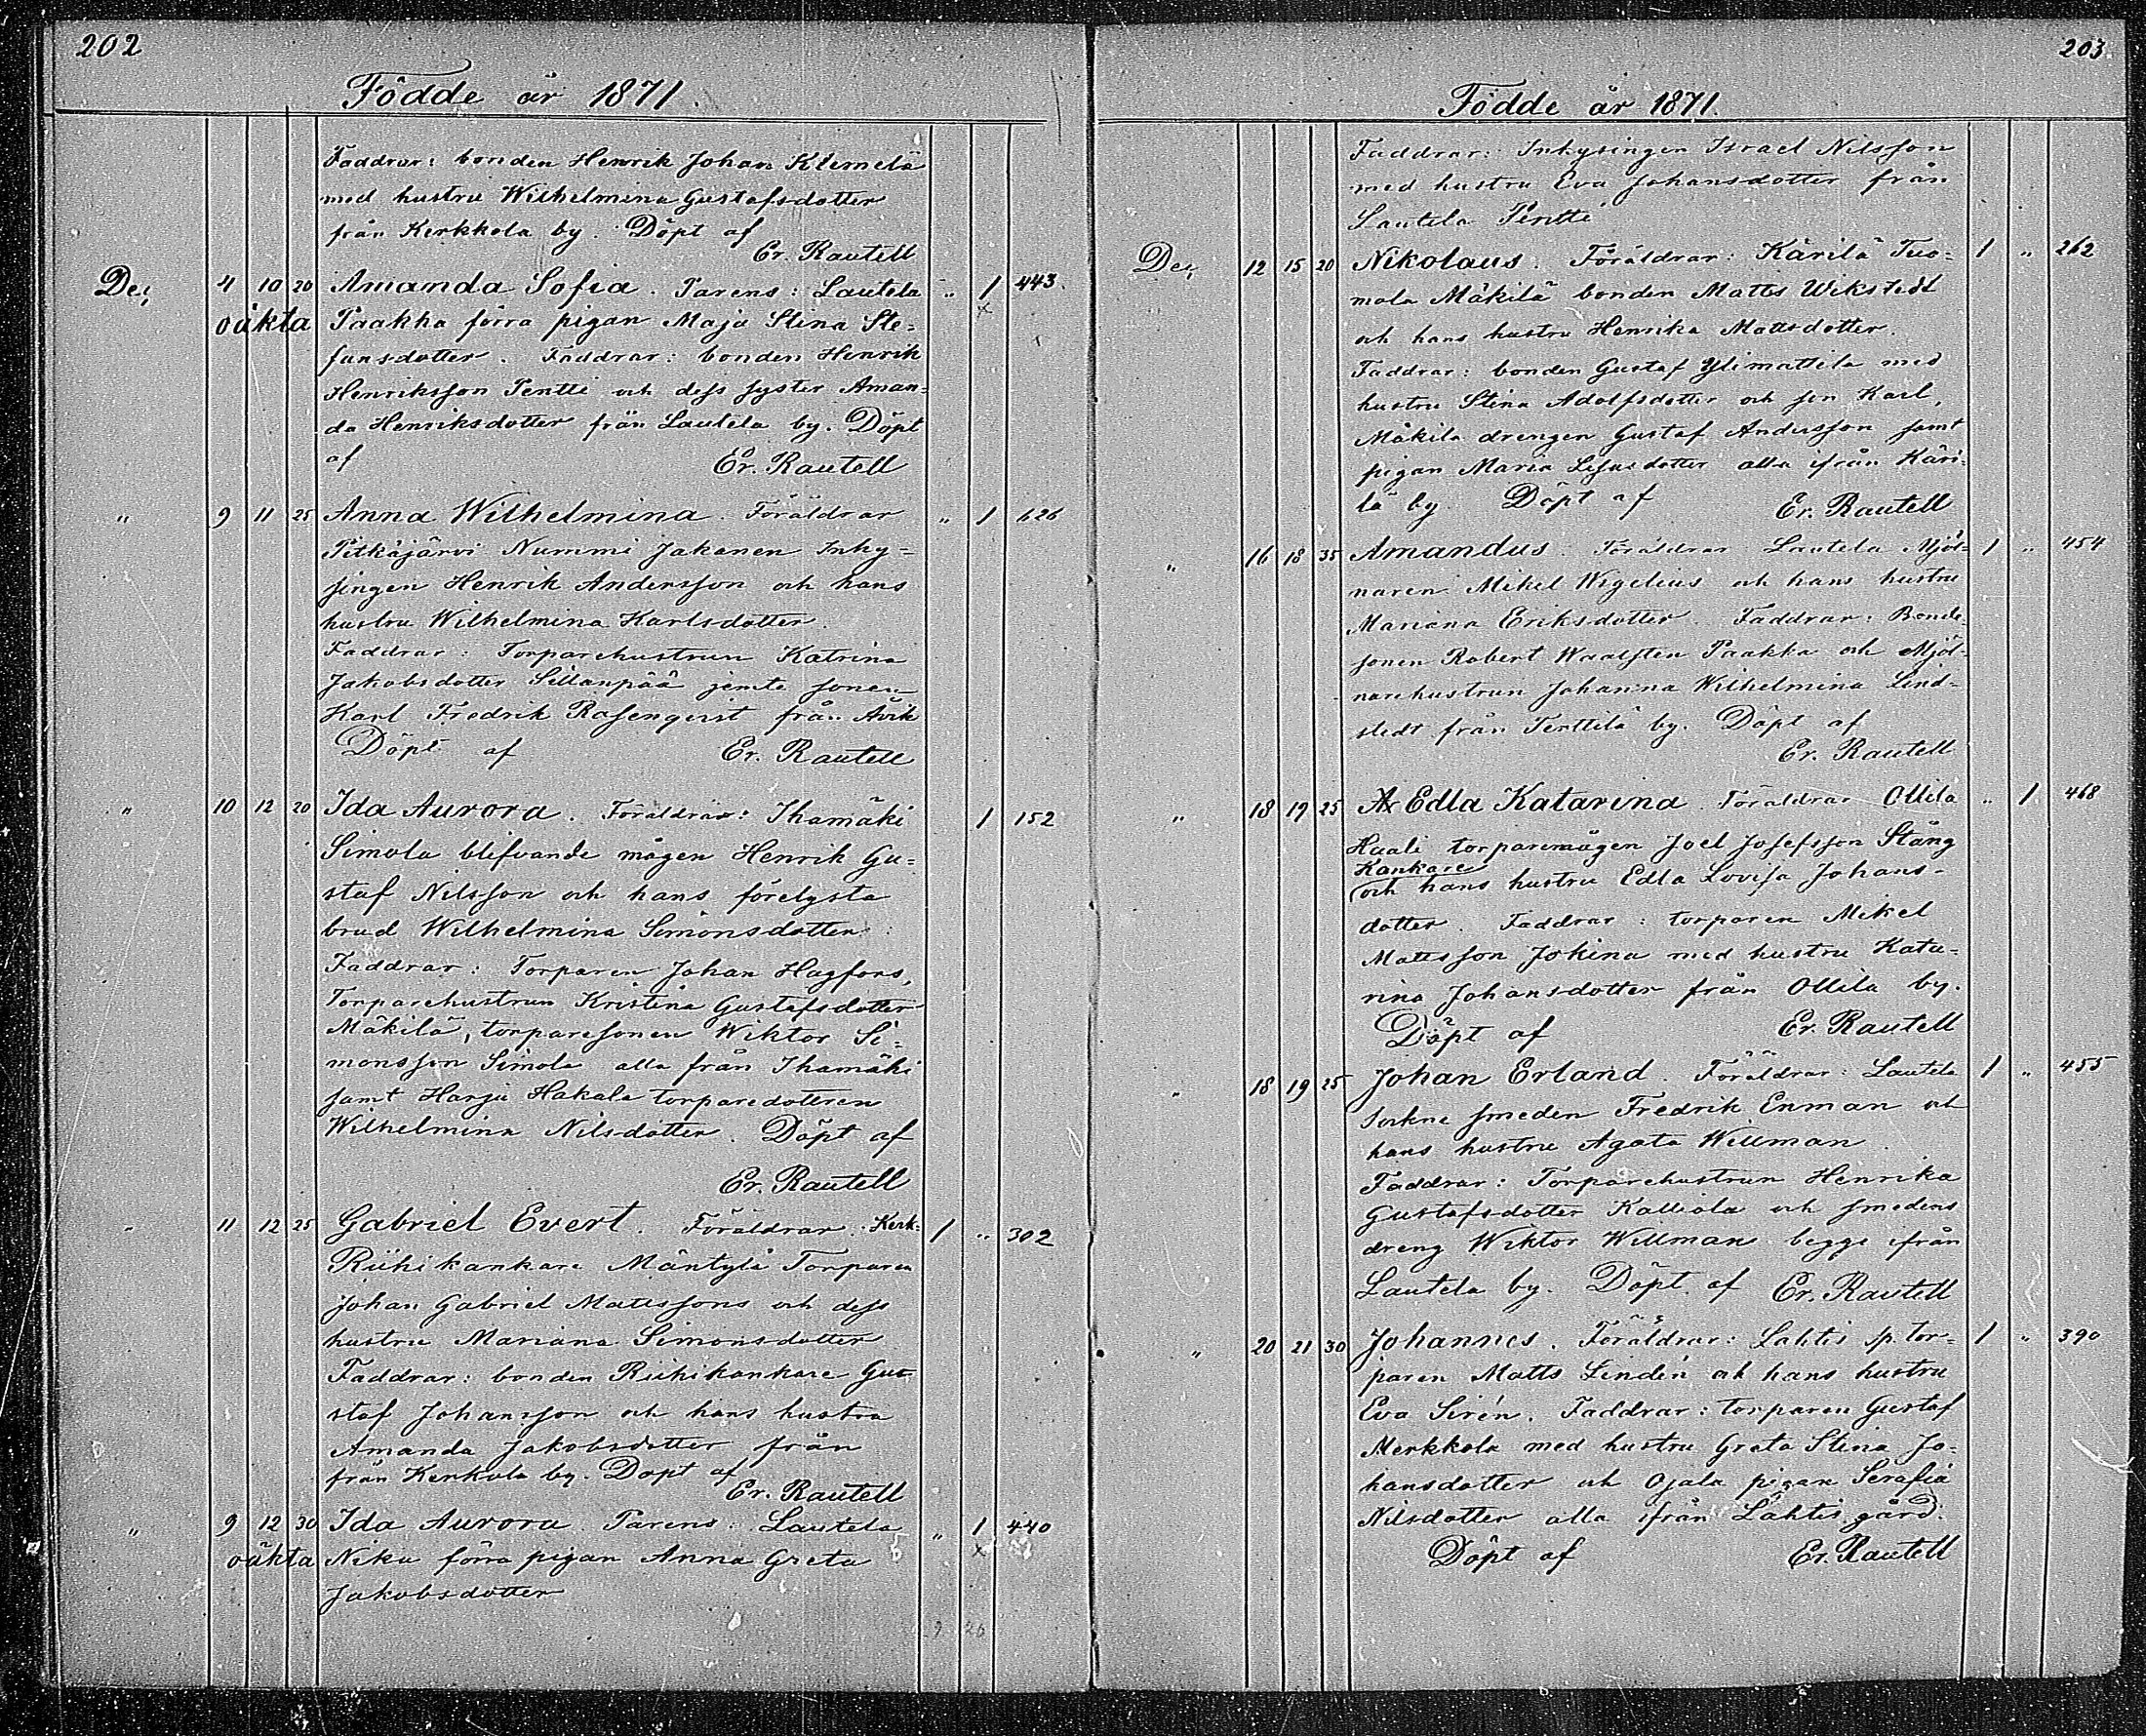 202
Födde år 1871.
Faddrar: bonden Henrik Johan Klemelä
med hustru Wilhelmina Gustafsdotter
från Kerkkola by. Döpt af
Er. Rautell
Dec. 4 10 20 Amanda Sofia. Parens: Lautela „ 1 443
oäkta Paakka förra pigan Maja Stina Ste=
fansdotter. Faddrar: bonden Henrik
Henriksson Pentti och dess syster Aman=
da Henriksdotter från Lautela by. Döpt
af Er. Rautell
„ 9 11 25 Anna Wilhelmina. Föräldrar „ 1 626
Pitkäjärvi Nummi Jakonen Inhy=
singen Henrik Andersson och hans
hustru Wilhelmina Karlsdotter.
Faddrar: Torparehustrun Katrina
Jakobsdotter Sillanpää jemte sonen
Karl Fredrik Rosenqvist från Åvik
Döpt af Er. Rautell
„ 10 12 20 Ida Aurora. Föräldrar: Ihamäki 1 152
Simola blifvande mågen Henrik Gu=
staf Nilsson och hans förelysta
brud Wilhelmina Simonsdotter.
Faddrar: Torparen Johan Hagfors,
Torparehustrun Kristina Gustafsdotter
Mäkilä, torparesonen Wiktor Si=
monsson Simola alla från Ihamäki
samt Harju Hakala torparedottren
Wilhelmina Nilsdotter. Döpt af
Er. Rautell
„ 11 12 25 Gabriel Evert. Föräldrar: Kerk: 1 „ 302
Riihikankare Mäntylä Torparen
Johan Gabriel Mattssons och dess
hustru Mariana Simonsdotter
Faddrar: bonden Riihikankare Gu
staf Johansson och hans hustru
Amanda Jakobsdotter från
från Kerkola by. Döpt af
Er. Rautell
„ 9 12 30 Ida Aurora. Parens: Lautela „ 1 440
oäkta Niku förra pigan Anna Greta
Jakobsdotter
203
Födde år 1871.
Faddrar: Inhysingen Israel Nilsson
med hustru Eva Johansdotter från
Lautela Pentti
Dec. 12 15 20 Nikolaus. Föräldrar: Kärilä Tuo= 1 „ 262
mola Mäkilä bonden Matts Wikstedt
och hans hustru Henrika Mattsdotter.
Faddrar: bonden Gustaf Ylimattila med
hustru Stina Adolfsdotter och son Karl,
Mäkilä drengen Gustaf Andersson samt
pigan Maria dotter alla ifrån Käri=
lä by. Döpt af Er. Rautell
„ 16 18 35 Amandus. Föräldrar Lautela Mjöl= 1 „ 454
naren Mikel Wigelius och hans hustru
Mariana Eriksdotter. Faddrar: Bonde=
sonen Robert Waalsten Paakka och Mjöl=
narehustrun Johanna Wilhelmina Lind=
stedt från Terttilä by. Döpt af
Er. Rautell
„ 18 19 25 Edla Katarina. Föräldrar Ollila „ 1 468
Haali torparemågen Joel Josefsson Stång
Kankare
och hans hustru Edla Lovisa Johans=
dotter. Faddrar: torparen Mikel
Mattsson Jokina med hustru Kata=
rina Johansdotter från Ollila by.
Döpt af Er. Rautell
„ 18 19 25 Johan Erland. Föräldrar: Lautela 1 „ 455
sockne smeden Fredrik Enman och
hans hustru Agata Willman.
Faddrar: Torparehustrun Henrika
Gustafsdotter Kalliola och smedens
dreng Wiktor Willman begge ifrån
Lautela by. Döpt af Er. Rautell
„ 20 21 30 Johannes. Föräldrar: Lahtis sp. tor= 1 „ 390
paren Matts Lindén och hans hustru
Eva Sirén. Faddrar: torparen Gustaf
Merkkola med hustru Greta Stina Jo=
hansdotter och Ojala pigan Serafia
Nilsdotter alla ifrån Lahtis gård.
Döpt af Er. Rautell